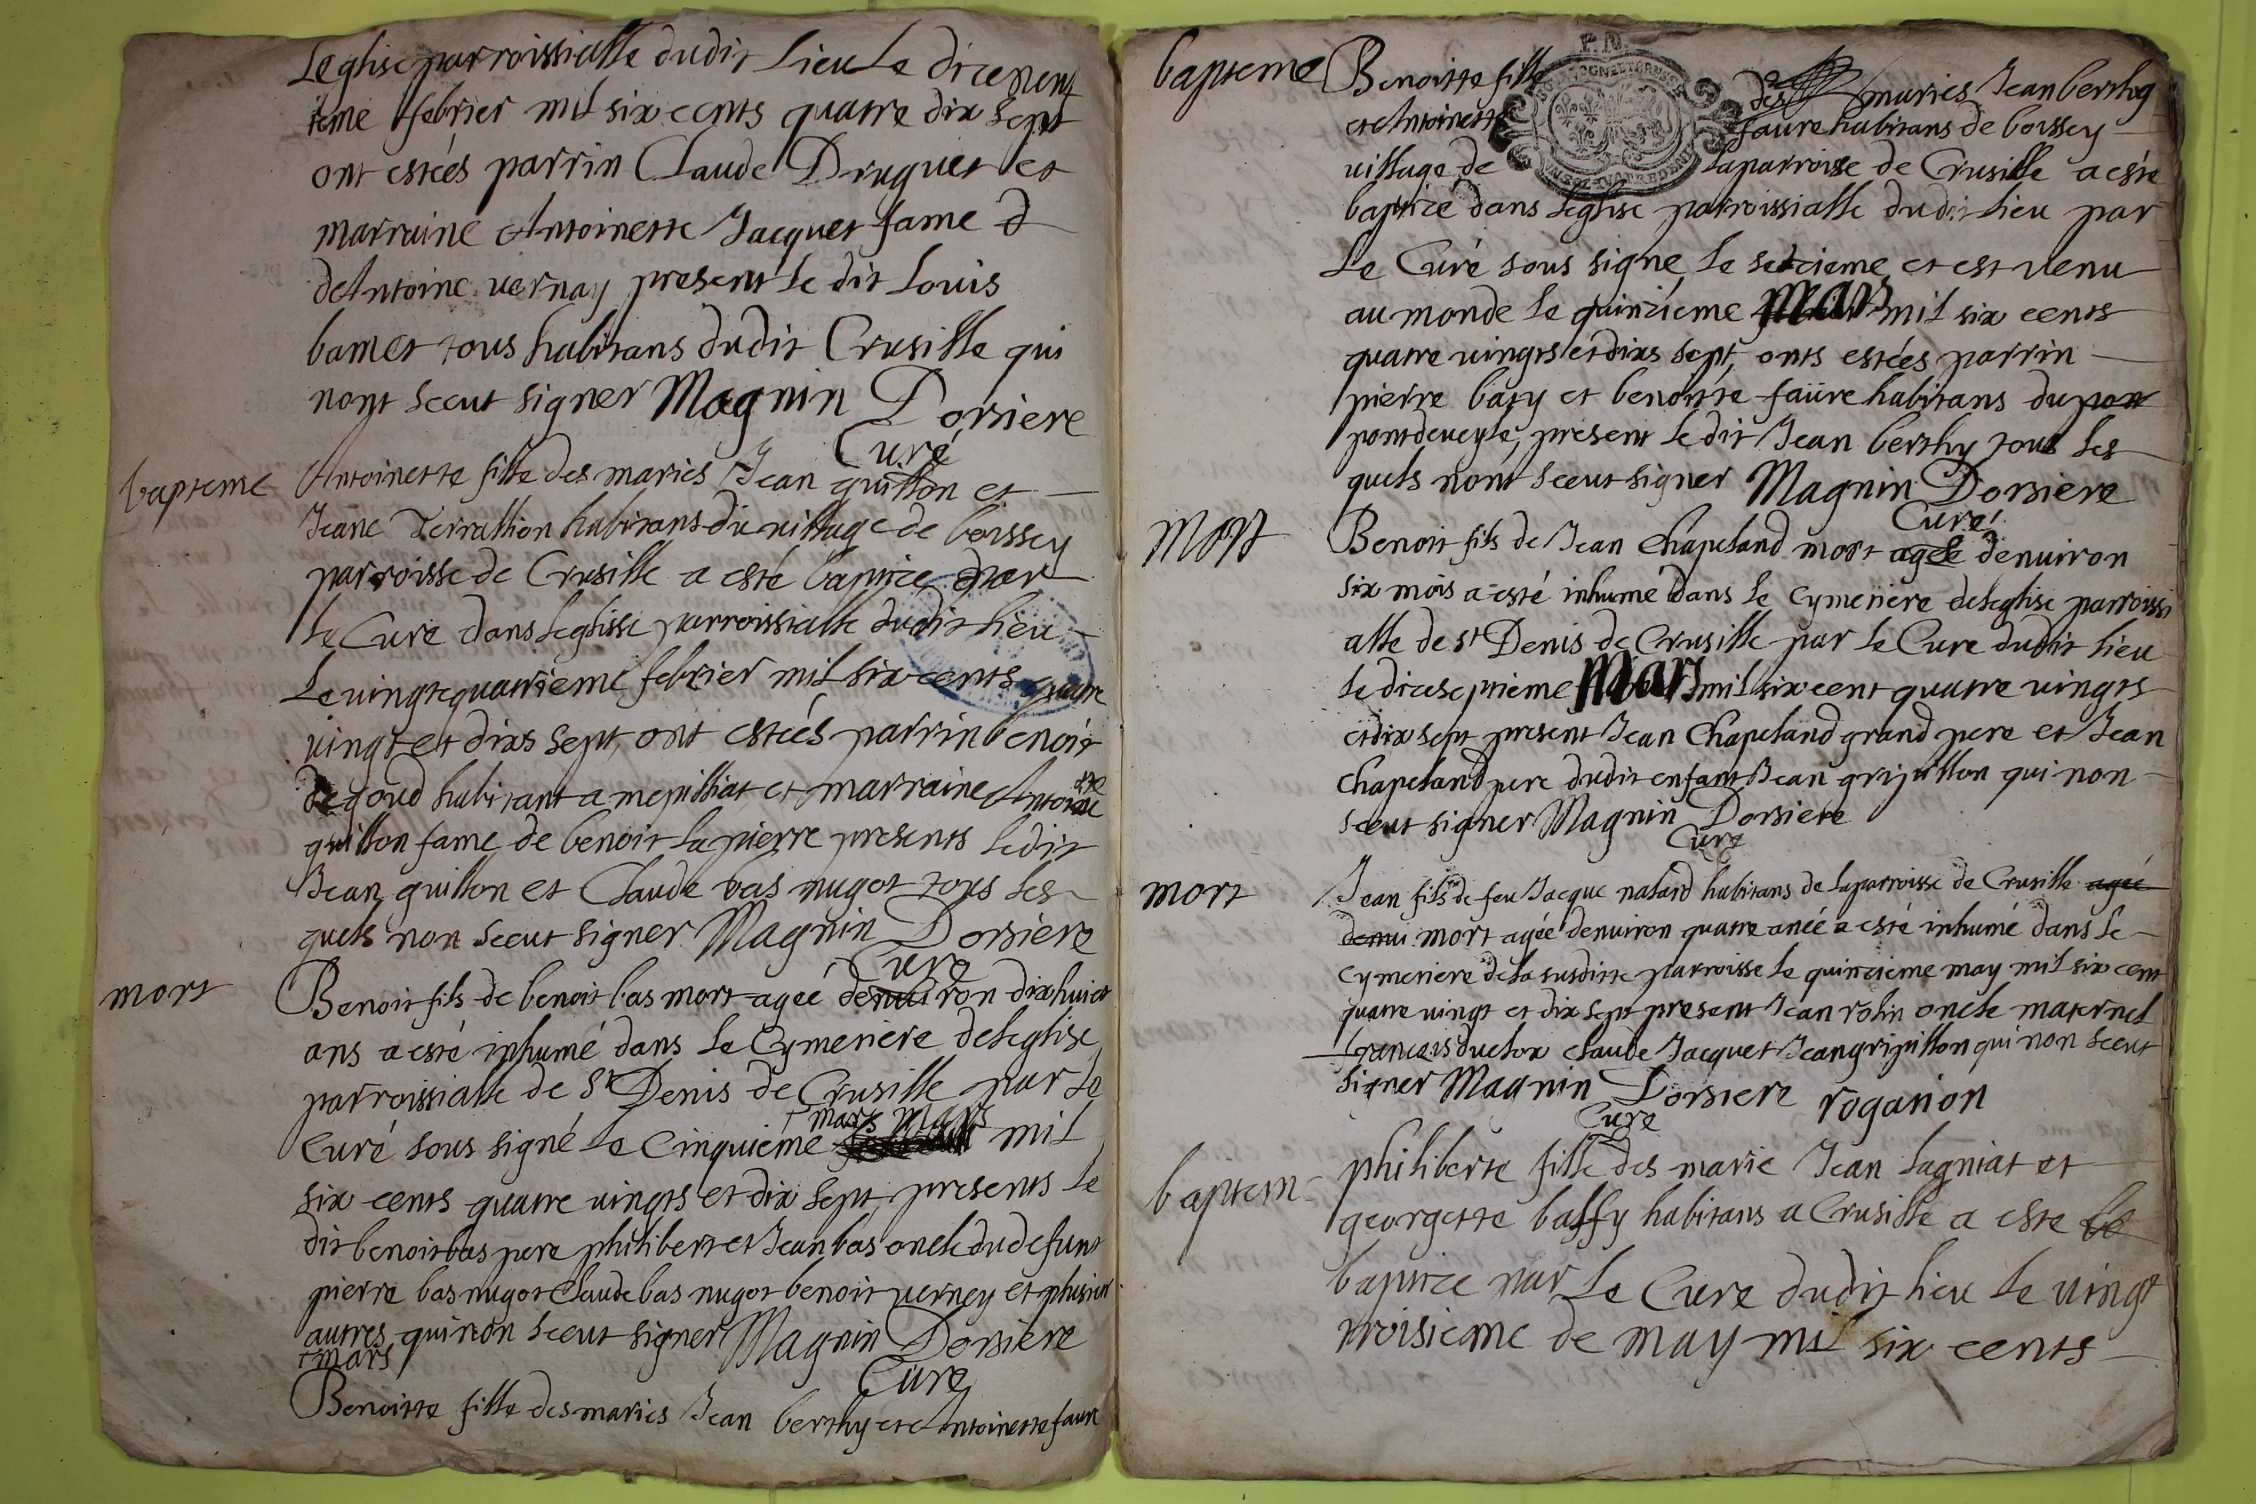 Leglise parroissialle dudit Lieu Le dicenent
ieme febrier mil six cents quatre dix sept
ont estées parrin Claude Druguet et
marraine Antoinette Jacquet fame d
deAntoine vernay present le dit Louis
bamet tous habitans dudit Crusille qui
nont sceut signer Magnin Dorsiere
Curé
bapteme Antoinette fille des maries Jean guillon et
Jeane Terrallion habitans du village de boissey
parroisse de Crusille a esté baptice par
le Curé dans leglisse parroissialle dudit lieu
Le vingtequatrieme febrier mil six cents quatre
vingt et dixs sept, ont estées parrin benoit
degoud habitant a mepilliat et marraine Antoinette
guillon fame de benoit Lapierre presents ledit
Jean guillon et Claude bas nugot tous les
quels non sceut signer Magnin Dorsiere
Cure
mort Benoit fils de benoit bas mort agée denuiron dixhuict
ans a esté inhumé dans le Cymeriere deleglise
parroissialle de St Denis de Crusille par le
+ mars mars
Curé sous signé le Cinquiéme mil
six cents quatre vingts et dix sept, presents le
dit benoit bas pere philibert et Jean bas oncle du defunt
pierre bas nugot Claude bas nugot benoit verney et plusieur
autres qui non sceut signer Magnin Dorsiere
+ mars
Cure
Benoitte fille des maries Jean berthy et Antoinette faure
bapteme Benoitte fille des maries Jean berthy
et Antoinette faure habitans de boissey
village de laparroisse de Crusille a esté
baptice dans leglise parroissialle dudit lieu par
Le Curé sous signé le seicieme et est venu
au monde le quinzieme Mars mil six cents
quatre vingts et dixs sept, onts estées parrin
pierre baty et benoitte faüre habitans du pon
pontdeveyle, present le dit Jean berthy tous les
quels nont sceut signer Magnin Dorsiere
Curé
Mort Benoit fils de Jean Chapeland mort agée denuiron
six mois a esté inhumé dans le Cymeriere deleglise parroissi
alle de St Denis de Crusille par le Cure dudit lieu
le diceseptieme Mars mil six cent quatre vingts
et dix sept present Jean Chapeland grand pere et Jean
Chapeland pere dudit enfant Jean gripillon qui non
sceut signer Magnin Dorsiere
Cure
mort Jean fils de feu Jacque naland habitans de laparroisse de Crusille agée
denui mort agée denuiron quatre anéé a esté inhumé dans le
Cymeriere de la susditte parroisse le quincieme may mil six cent
quatre vingt et dix sept present Jean rolin oncle maternel
francois duclox Claude Jacquet Jean gripillon qui non sceut
signer Magnin Dorsiere roganion
Cure
baptem- philiberte fille des marie Jean Lagniat et
georgette baffy habitans a Crusille a este
baptice par le Cure dudit lieu le vingt
troisieme de may mil six cents